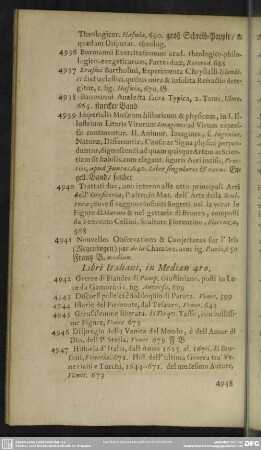 Theologicæ. Hafniæ, 690. groß Schreib-Papple/ &
quædam Disputat. theolog.
4936 Burmanni Exercitationum acad. theologico-philo-
logico-exegeticarum, Partes duæ, Roterod. 688
4937 Erasmi Bartholini, Experimenta Chrystalli Islandi-
ci disdiaclastici, quibus mira & insolita Refractio dete-
gitur, c. fig. Hafniæ, 670. G
4938 Analecta sacra Typica, 2. Tomi, Ulmæ
665. starcker Band
4939 Imperialis Musæum historicum & physicum, in I. Il-
lustrium Literis Virorum Imagines ad Vivum expres-
sæ continentur. II. Animor. Imagines, s. Ingenior.
Naturæ, Differentiæ, Causæ ac Signa physice perpen-
duntur, dignoscendi ad quam quisque Artem ac Scien-
tiam sit habilis, cum elegant. figuris Aeri incisis, Vene-
tiis, apud Juntas, 640. Liber singularis & rarus. En-
gell. Band/ sauber
4940 Trattati due, uno intorno alle otto principali Arti
dell' Oreficeria, l'altro in Mat. dell' Arte della Scul-
tura; dove si veggono infiniti Segreti nel la vorar le
Figure di Marmo & nel gettarle di Bronzo, composti
da Benvenuto Cellini, Scultore Fiorentino, Fiorenza,
568
4941 Nouvelles Observations & Conjectures sur l' Iris
(Regenbogen) par de la Chambre, avec fig. Paris, 650
Frantz B. median.
Libri Italiani, in Median 4to.
4942 Guerre di Fiandra di Pomp. Giustiniano, posti in Lu-
ce da Gamorini c. fig. Antorfo, 609
4943 Discorsi politici di Nobilo quint di Paruta. Venet. 599
4944 Istorie del Parlamento, dal Tesauro, Venet. 643
4945 Gerusalemme liberata, di Torqv. Tasso, con bellis-
sime Figure, Venet. 673
4946 Dispregio della Vanita del Mondo, è dell'Amor di
Dio, dell P. Stella. Venet. 679. F. B
4947 Historia d' Italia, dall Anno 1625. al. 1670. di Bru-
soni, Venetia. 671. Hist. dell' ultima Guerra tra Ve-
netiani e Turchi, 1644-671. del medesimo Autore,
Venet. 673
4948